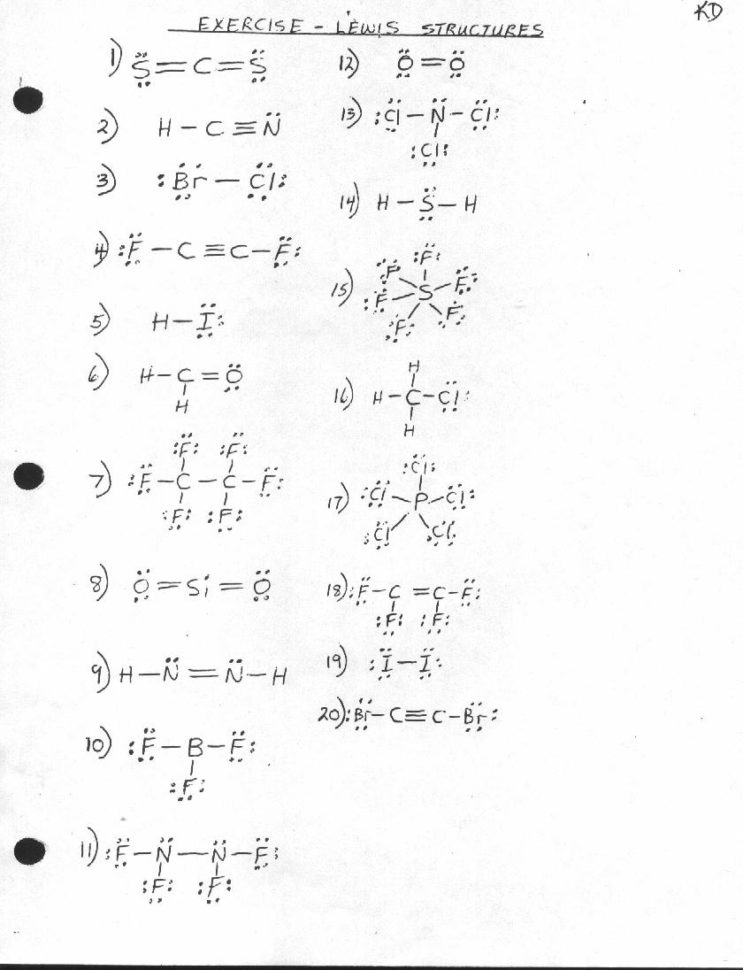 KD
EXERCISE - LEWIS STRUCTURES
1) S̤̈=C=S̤̈
2) H-C≡N̈
3) :B̤̈r-C̤̈l:
4) :F̤̈-C≡C-F̤̈:
5) H-Ï̤:
6) H-C=Ö̤
H
7) :F̈: :F̈:
:F̤̈-C-C-F̤̈:
:F̤: :F̤:
8) Ö̤=Si=Ö̤
9) H-N̈=N̈-H
10) :F̤̈-B-F̤̈:
:F̤:
11) :F̤̈-N̈-N̈-F̤̈:
:F̤: :F̤:
12) Ö̤=Ö̤
13) :C̤̈l-N̈-C̤̈l:
:C̤l:
14) H-S̤̈-H
15) :F̈:
F F
S
:F F
F
16) H
H-C-C̤̈l:
H
17) :C̈l:
:C̈l P C̈l:
:C̤l :C̤l:
18) :F̤̈-C=C-F̤̈:
:F̤: :F̤:
19) :Ï̤-Ï̤:
20) :B̤̈r-C≡C-B̤̈r: